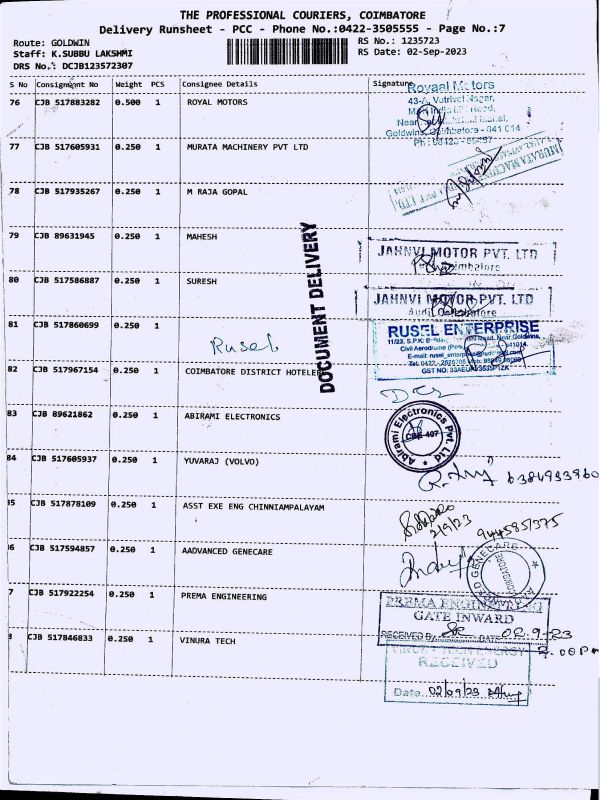 THE PROFESSIONAL COURIERS, COIMBATORE
Delivery Runsheet - PCC - Phone No.:0422-3505555 - Page No.:7
Route: GOLDWIN
Staff: K.SUBBU LAKSHMI
DRS No.: DCJB123572307
RS No.: 1235723
RS Date: 02-Sep-2023
S No Consignment No Weight PCS Consignee Details Signature
76 CJB 517883282 0.500 1 ROYAL MOTORS
Royaal Motors
Goldwins, Coimbatore - 641 014
77 CJB 517605931 0.250 1 MURATA MACHINERY PVT LTD
78 CJB 517935267 0.250 1 M RAJA GOPAL
79 CJB 89631945 0.250 1 MAHESH
JAHNVI MOTOR PVT. LTD
Coimbatore
80 CJB 517586887 0.250 1 SURESH
JAHNVI MOTOR PVT. LTD
Audi Coimbatore
81 CJB 517860699 0.250 1
Rusel
RUSEL ENTERPRISE
DOCUMENT DELIVERY
82 CJB 517967154 0.250 1 COIMBATORE DISTRICT HOTELER
83 CJB 89621862 0.250 1 ABIRAMI ELECTRONICS
Abirami Electronics Pvt. Ltd
CBE-407
84 CJB 517605937 0.250 1 YUVARAJ (VOLVO)
15 CJB 517878109 0.250 1 ASST EXE ENG CHINNIAMPALAYAM
2/9/23
9445851375
16 CJB 517594857 0.250 1 AADVANCED GENECARE
GENECARE
7 CJB 517922254 0.250 1 PREMA ENGINEERING
PREMA ENGINEERING
GATE INWARD
RECEIVED By DATE 02.9-23
2.00PM
8 CJB 517846833 0.250 1 VINURA TECH
RECEIVED
Date 02/09/23